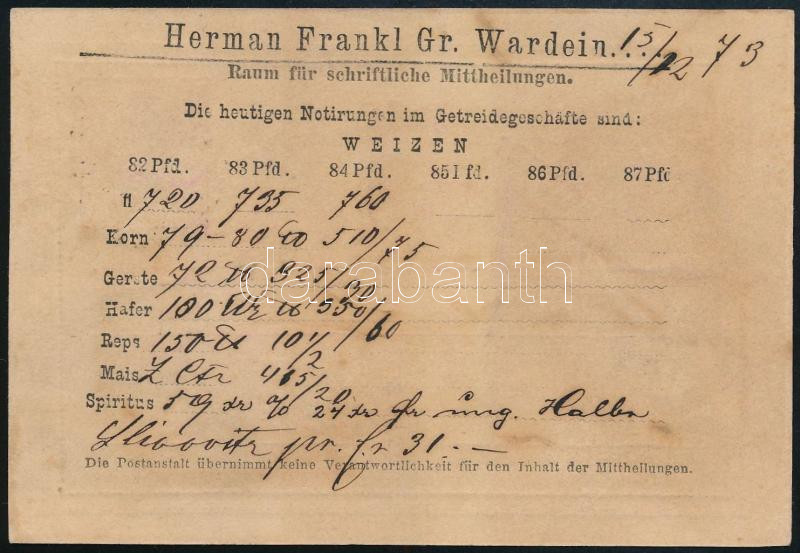 Herman Frankl Gr. Wardein... 15/12 73
Raum für schriftliche Mittheilungen.
Die heutigen Notirungen im Getreidegeschäfte sind:
WEIZEN
82 Pfd. 83 Pfd. 84 Pfd. 85 Pfd. 86 Pfd. 87 Pfd
fl 720 735 760
Korn 79-80 510/75
Gerste 72 325/30
Hafer 100 550/60
Reps 150 10 1/2
Mais Z Ctr 415/20
Spiritus 59 27 ung. Halbe
Slivovitz pr. 31.-
Die Postanstalt übernimmt keine Verantwortlichkeit für den Inhalt der Mittheilungen.
darabanth